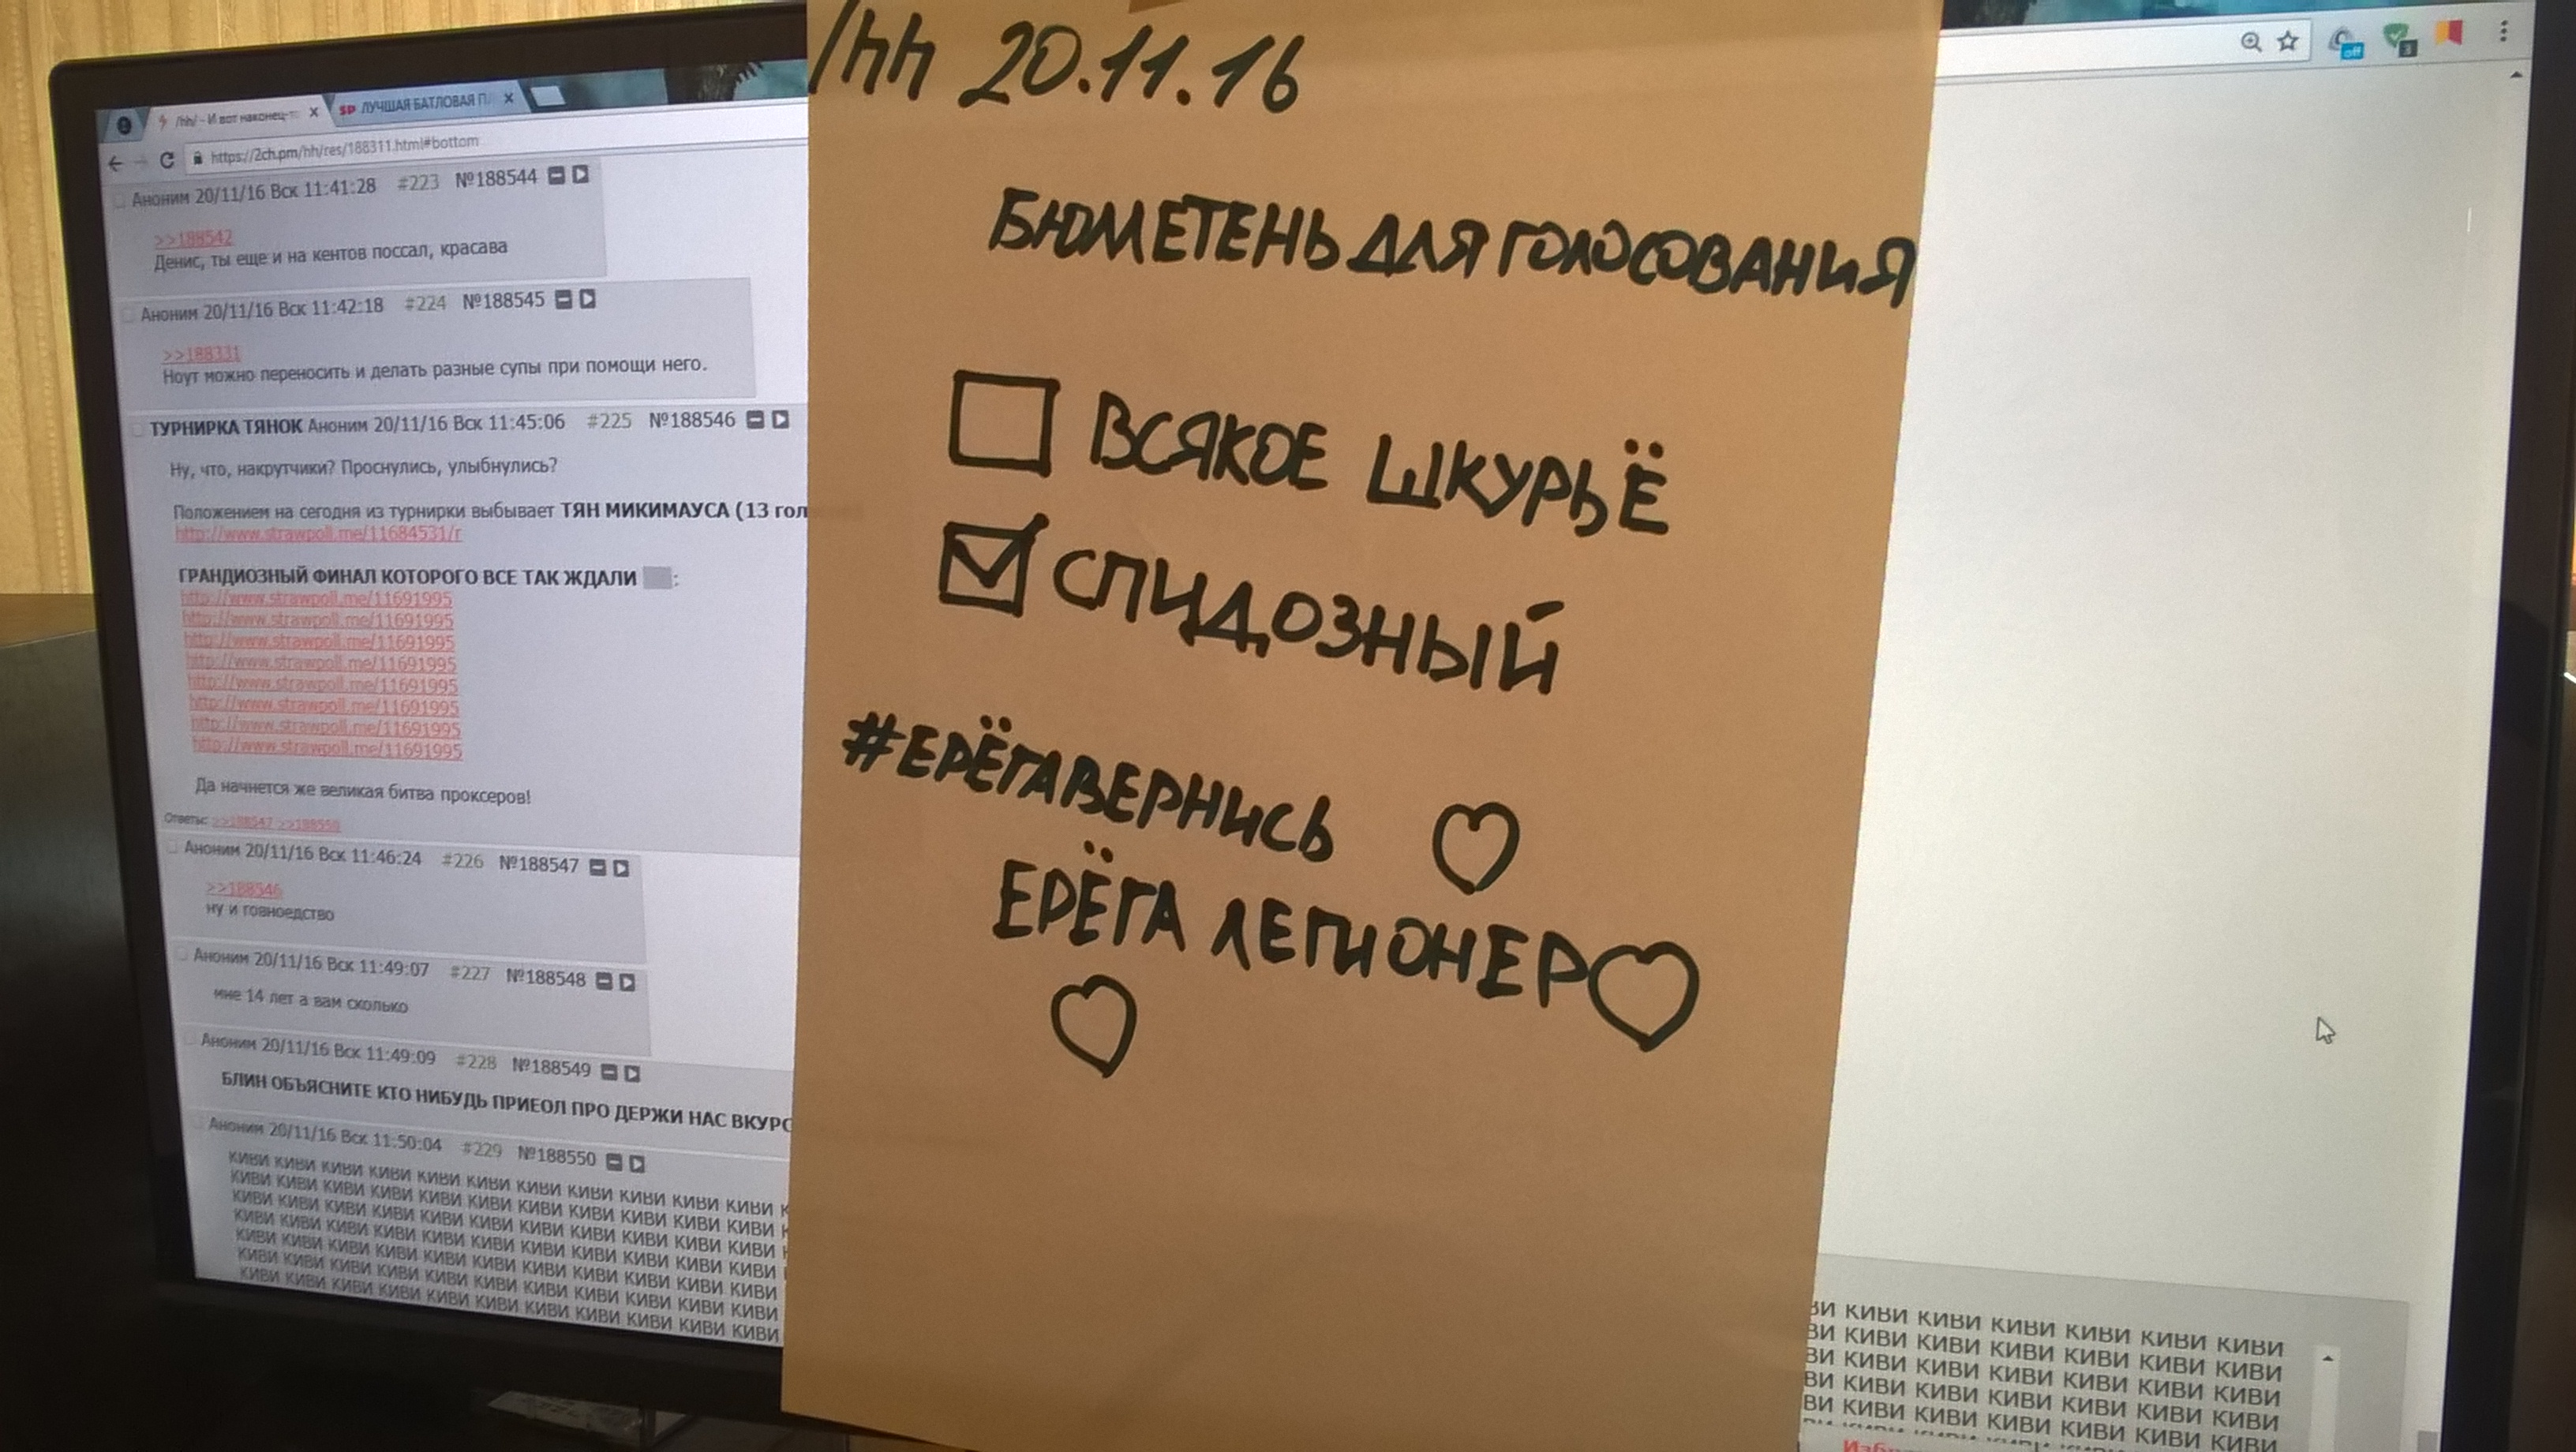 /hh/ - И вот наконец-т
SD ЛУЧШАЯ БАТЛОВАЯ П
https://2ch.pm/hh/res/188311.html#bottom
off
3
Аноним 20/11/16 Вск 11:41:28 #223 №188544
>>188542
Денис, ты еще и на кентов поссал, красава
Аноним 20/11/16 Вск 11:42:18 #224 №188545
>>188331
Ноут можно переносить и делать разные супы при помощи него.
ТУРНИРКА ТЯНОК Аноним 20/11/16 Вск 11:45:06 #225 №188546
Ну, что, накрутчики? Проснулись, улыбнулись?
Положением на сегодня из турнирки выбывает ТЯН МИКИМАУСА (13 гол
http://www.strawpoll.me/11684531/r
ГРАНДИОЗНЫЙ ФИНАЛ КОТОРОГО ВСЕ ТАК ЖДАЛИ :
http://www.strawpoll.me/11691995
http://www.strawpoll.me/11691995
http://www.strawpoll.me/11691995
http://www.strawpoll.me/11691995
http://www.strawpoll.me/11691995
http://www.strawpoll.me/11691995
http://www.strawpoll.me/11691995
http://www.strawpoll.me/11691995
Да начнется же великая битва проксеров!
Ответы: >>188547 >>188550
Аноним 20/11/16 Вск 11:46:24 #226 №188547
>>188546
ну и говноедство
Аноним 20/11/16 Вск 11:49:07 #227 №188548
мне 14 лет а вам сколько
Аноним 20/11/16 Вск 11:49:09 #228 №188549
БЛИН ОБЪЯСНИТЕ КТО НИБУДЬ ПРИЕОЛ ПРО ДЕРЖИ НАС ВКУРС
Аноним 20/11/16 Вск 11:50:04 #229 №188550
КИВИ КИВИ КИВИ КИВИ КИВИ КИВИ КИВИ КИВИ КИВИ КИВИ КИВИ К
КИВИ КИВИ КИВИ КИВИ КИВИ КИВИ КИВИ КИВИ КИВИ КИВИ КИВИ К
КИВИ КИВИ КИВИ КИВИ КИВИ КИВИ КИВИ КИВИ КИВИ КИВИ КИВИ К
КИВИ КИВИ КИВИ КИВИ КИВИ КИВИ КИВИ КИВИ КИВИ КИВИ КИВИ
КИВИ КИВИ КИВИ КИВИ КИВИ КИВИ КИВИ КИВИ КИВИ КИВИ КИВИ
КИВИ КИВИ КИВИ КИВИ КИВИ КИВИ КИВИ КИВИ КИВИ КИВИ КИВИ
КИВИ КИВИ КИВИ КИВИ КИВИ КИВИ КИВИ КИВИ КИВИ КИВИ КИВИ
/hh 20.11.16
БЮЛЛЕТЕНЬ ДЛЯ ГОЛОСОВАНИЯ
ВСЯКОЕ ШКУРЬЁ
СПИДОЗНЫЙ
#ЕРЁГАВЕРНИСЬ
ЕРЁГА ЛЕГИОНЕР
ВИ КИВИ КИВИ КИВИ КИВИ КИВИ КИВИ
ВИ КИВИ КИВИ КИВИ КИВИ КИВИ КИВИ
ВИ КИВИ КИВИ КИВИ КИВИ КИВИ КИВИ
ВИ КИВИ КИВИ КИВИ КИВИ КИВИ КИВИ
ВИ КИВИ КИВИ КИВИ КИВИ КИВИ КИВИ